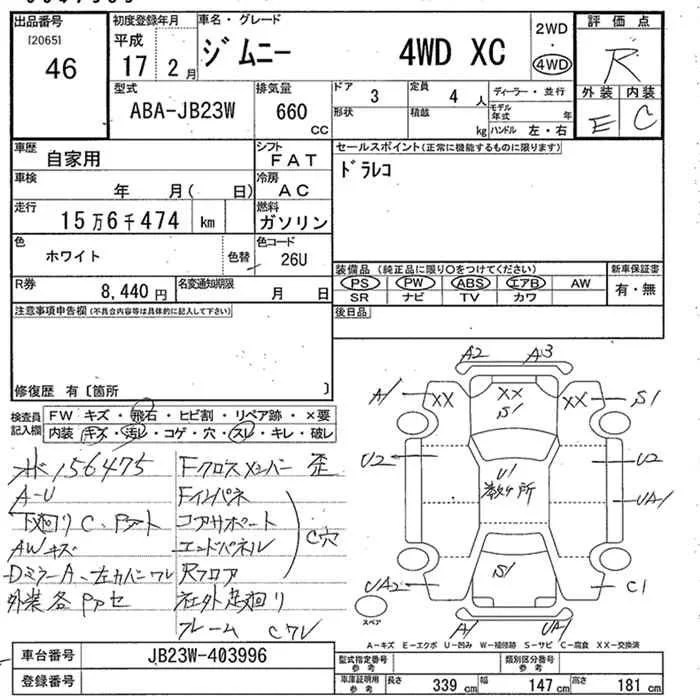 出品番号
[2065]
46
初度登録年月
平成
17 2 月
車名・グレード
ジムニー 4WD XC
2WD
・
4WD
評価点
R
外装 内装
E C
型式
ABA-JB23W
排気量
660
CC
ドア
3
定員
4 人
ディーラー・並行
形状
積載
kg
モデル年式 年
ハンドル 左・右
車歴
自家用
シフト
FAT
セールスポイント(正常に機能するものに限ります)
ドラレコ
車検
年 月( 日)
冷房
AC
走行
15万6千474 km
燃料
ガソリン
色
ホワイト
色替
色コード
26U
R券
8,440円
名変通知期限
月 日
装備品 (純正品に限り○をつけてください)
PS PW ABS エアB AW
SR ナビ TV カワ
新車保証書
有・無
注意事項申告欄 (不具合内容等は具体的に記入して下さい)
後日品
修復歴 有〔箇所 〕
検査員記入欄
FW キズ・飛石・ヒビ割・リペア跡・×要
内装 キズ・汚レ・コゲ・穴・スレ・キレ・破レ
156475
A-U
下廻り C、Pアート
AWキズ
Dミラー A、左カバーワレ
外装各Pアセ
Fクロスメンバー 歪
Fインパネ
コアサポート
エンドパネル
Rフロア
C穴
社外足廻り
フレーム Cワレ
A2 A3
A1 XX XX XX S1
S1
U2 U1 U2
数ケ所
UA1
S1
UA2 C1
A1 UA1
スペア
A-キズ E-エクボ U-凹み W-補修跡 S-サビ C-腐食 XX-交換済
車台番号
JB23W-403996
登録番号
型式指定番号
参考
類別区分番号
参考
車庫証明用
参考
長さ 339 cm
幅 147 cm
高さ 181 cm